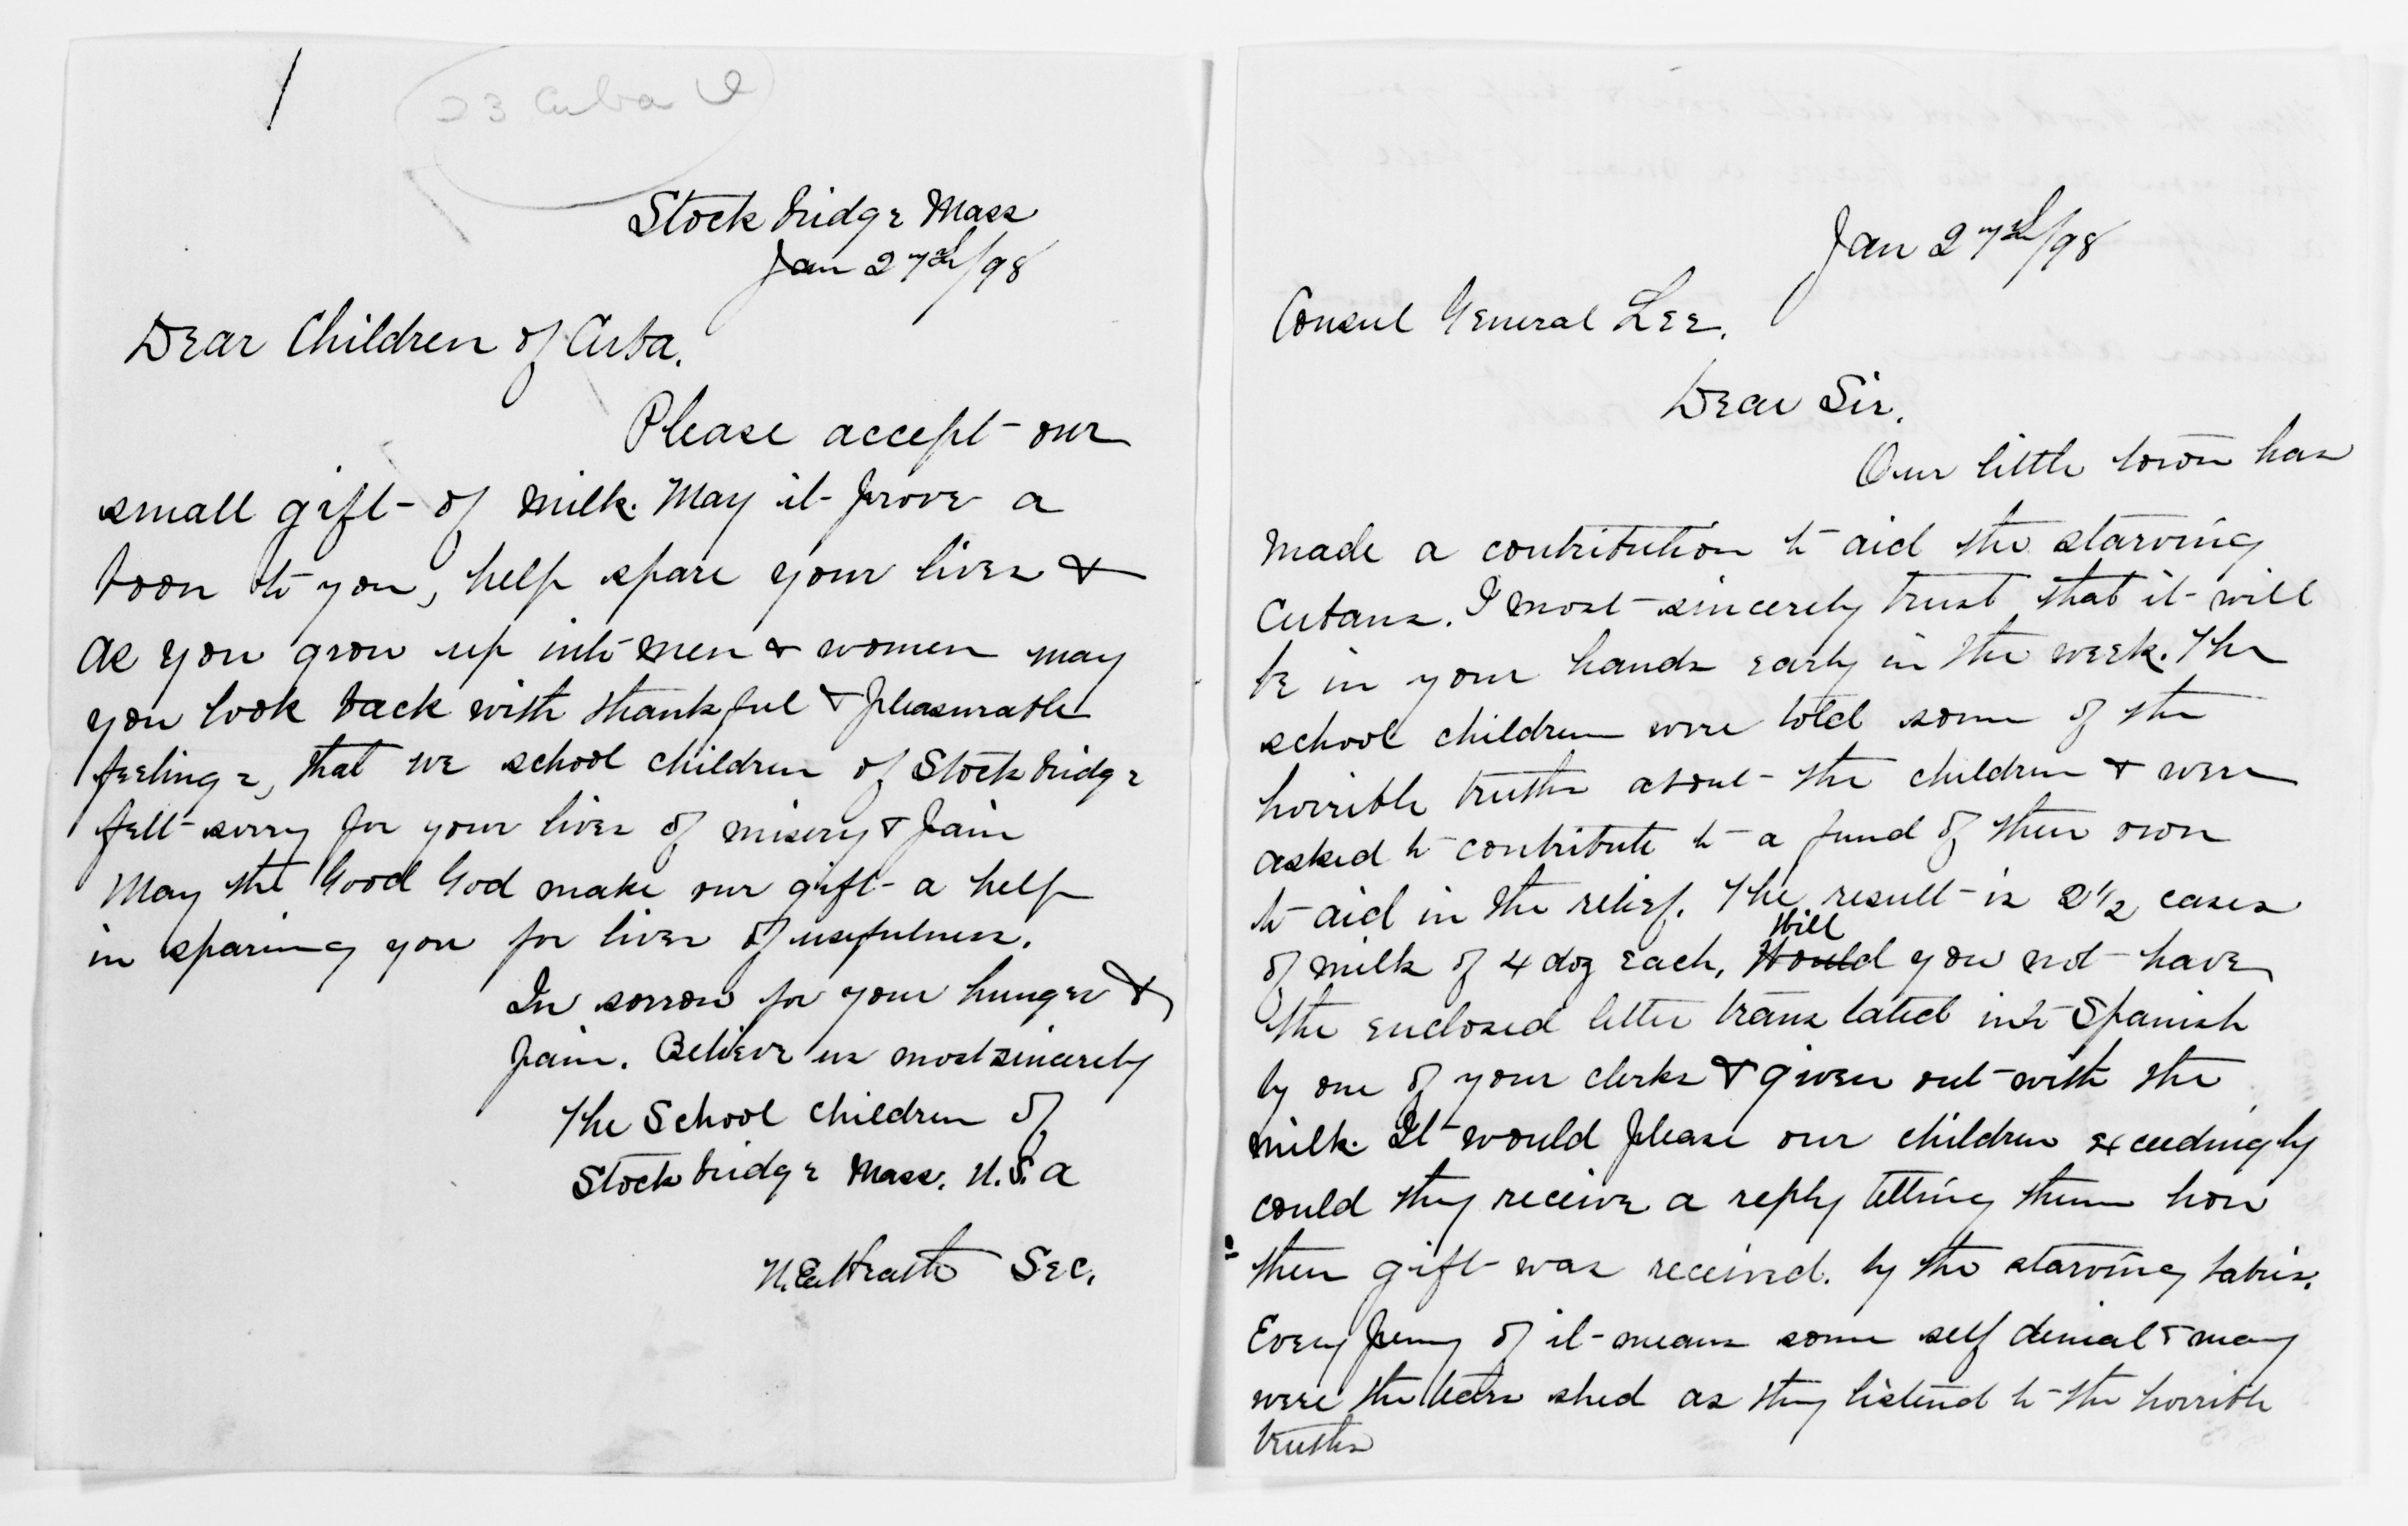 23 Cuba
Stockbridge Mass
Jan 27th/98
Dear Children of Cuba.
Please accept our
small gift of milk. May it prove a
boon to you, help spare your lives &
as you grow up into men & women may
you look back with thankful & pleasurable
feelings, that we school children of Stockbridge
felt sorry for your lives of misery & pain
May the Good God make our gift a help
in sparing you for lives of usefulness.
In sorrow for your hunger &
pain. Believe us most sincerely
The School children of
Stockbridge Mass. U.S.A
Heath Sec.
Jan 27th/98
Consul General Lee.
Dear Sir.
Our little town has
made a contribution to aid the starving
Cubans. I most sincerely trust that it will
be in your hands early in the week. The
school children were told some of the
horrible truths about the children & were
asked to contribute to a fund of their own
to aid in the relief. The result is 2 1/2 cases
of milk of 4 doz each, Would Will you not have
the enclosed letter translated into Spanish
by one of your clerks & given out with the
milk. It would please our children exceedingly
could they receive a reply telling them how
their gift was received. by the starving babies.
Every penny of it means some self denial & many
were the tears shed as they listend to the horrible
truths